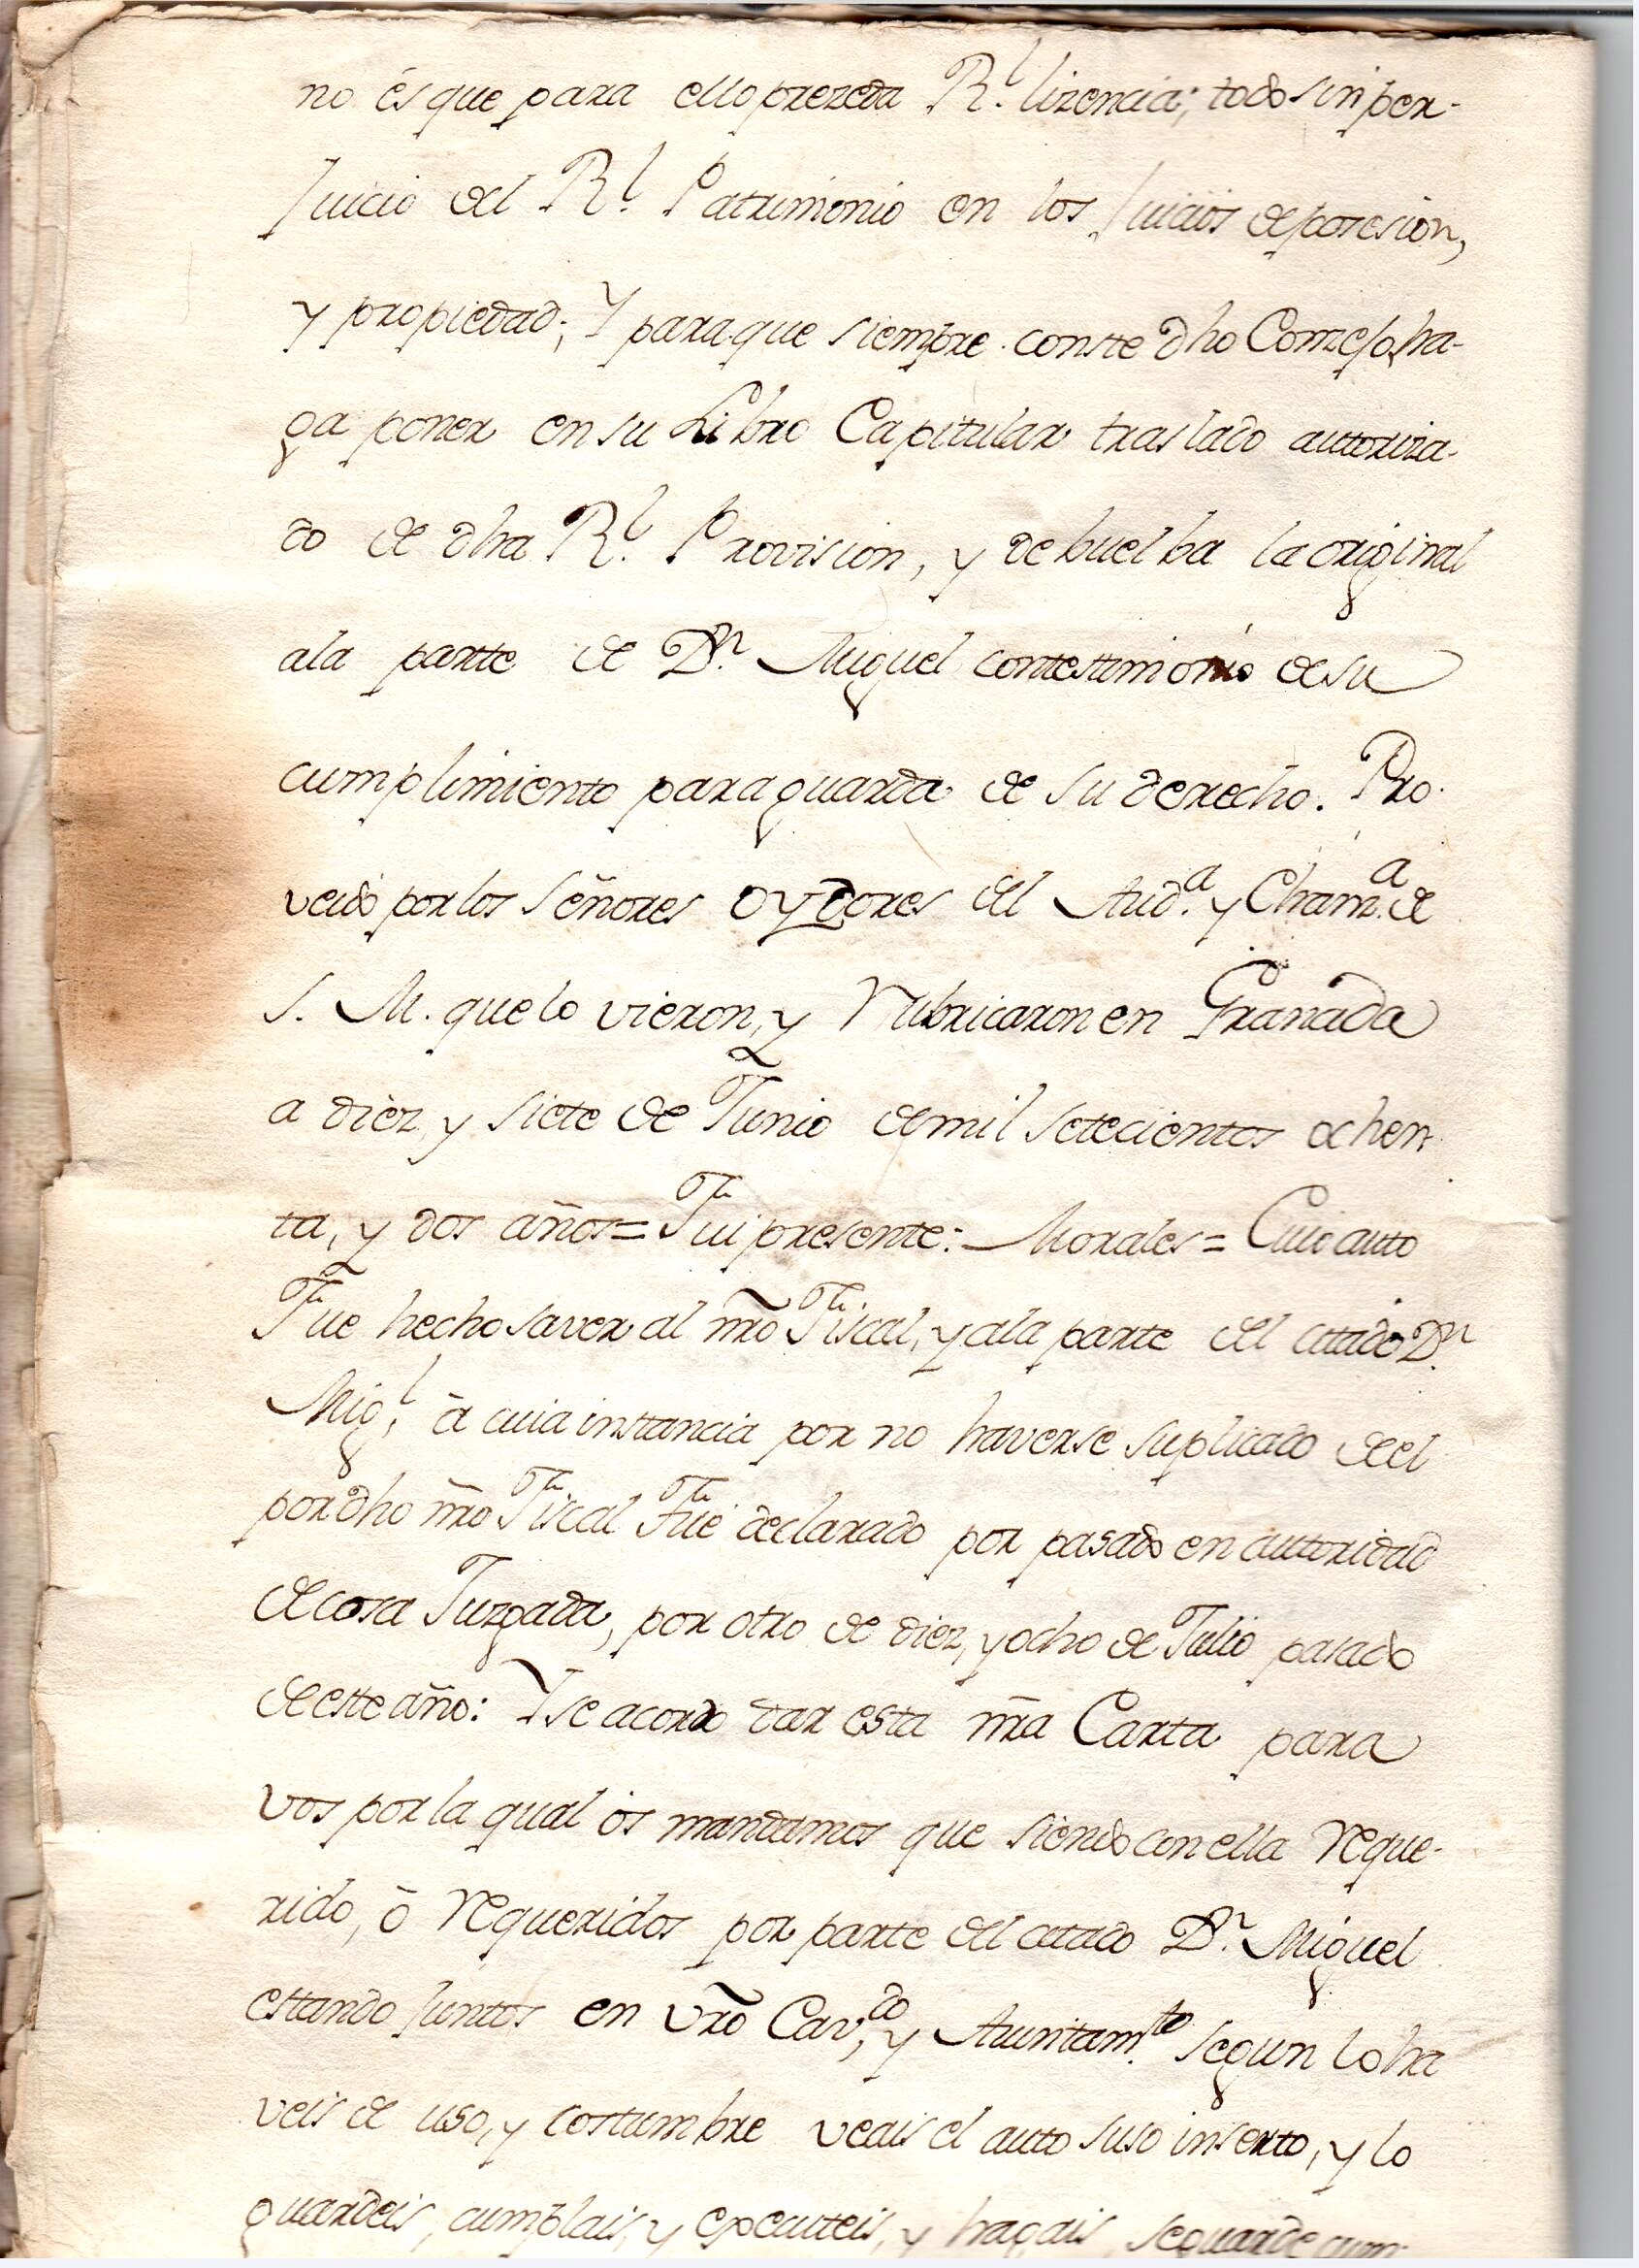 no és que para ello prezeda Rl. lizencia; todo sin per-
Juicio del Rl. Patrimonio en los Juicios de posesion,
y propiedad; Y para que siempre conste dho Conzejo, ha-
ga poner en su Libro Capitular traslado autoriza-
do de dha Rl. Provision, y debuelba la original
ala parte de Dn. Miguel con testimonio de su
cumplimiento para guarda de su derecho. Pro-
veido por los señores oydores del Auda. y Chamza. de
S. M. que lo vieron, y rubricaron en Granada
a diez y siete de Junio de mil setecientos ochen-
ta, y dos años= Fui presente:- Morales= Cuio auto
Fue hecho saver al nr̃o Fiscal, y ala parte del citado Dn.
Migl. à cuia instancia por no haverse suplicado de el
por dho nr̃o Fiscal Fue declarado por pasado en autoridad
de cosa Juzgada, por otro de diez, y ocho de Julio pasado
de este año: Y se acordo dar esta nr̃a Carta para
vos por la qual os mandamos que siendo con ella reque-
rido, ò requeridos por parte del citado Dn. Miguel
estando Juntos en vr̃o Cavdo, y Aiuntamto. segun lo ha
veis de uso, y costumbre veais el auto suso inserto, y lo
guardeis, cumplais, y executeis, y hagais se guarde cum-